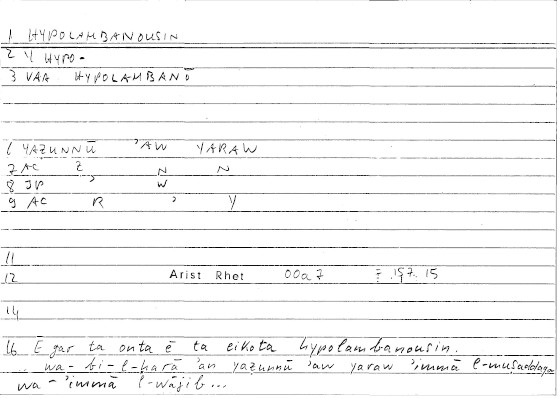 1 HYPOLAMBANOUSIN
2 Y HYPO-
3 VAA HYPOLAMBANŌ
6 YAZUNNŪ ʾAW YARAW
7 AC Z N N
8 JP ʾ W
9 AC R ʾ Y
11
12 Arist Rhet 00a7 197.15
14
16 E gar ta onta ē ta eikota hypolambanousin.
.. wa-bi-l-ḥarā ʾan yazunnū ʾaw yaraw ʾimmā l-muṣaddaqa
wa-ʾimmā l-wājib...